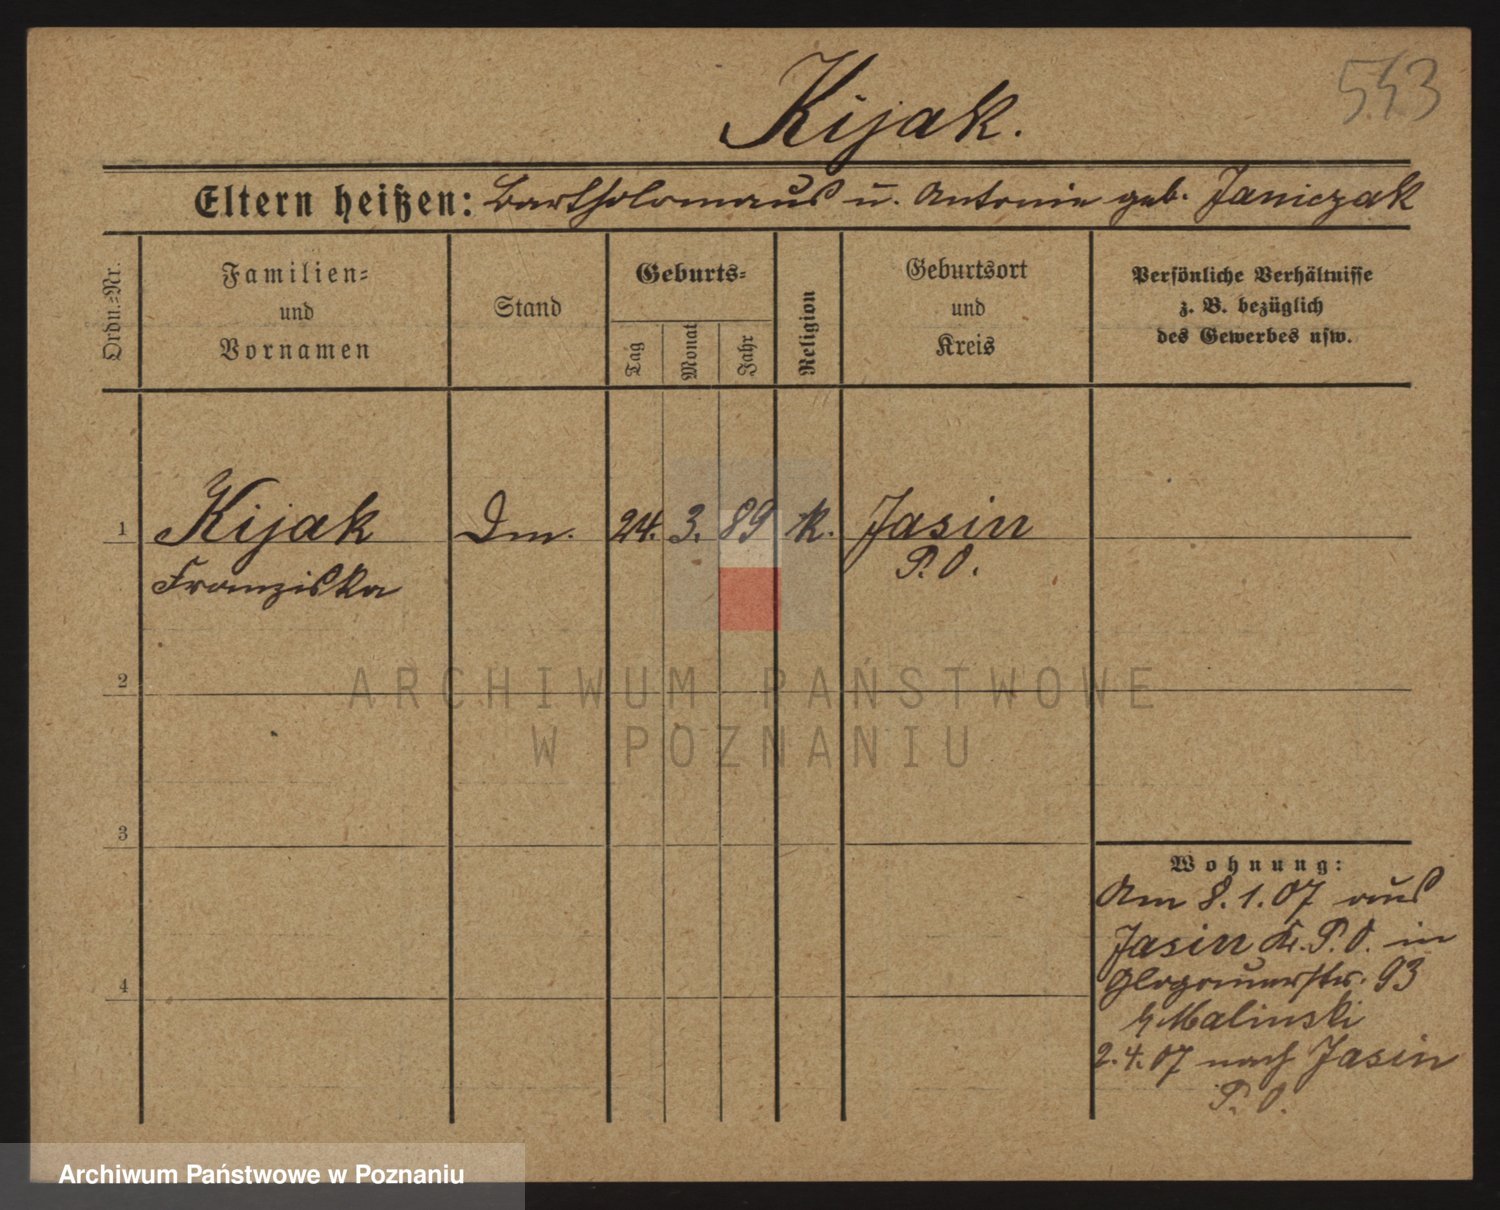 543
Kijak.
Eltern heißen: Bartholomäus u. Antonie geb. Janiczak
Ordn.=Nr.
Familien=
und
Vornamen
Stand
Geburts=
Tag
Monat
Jahr
Religion
Geburtsort
und
Kreis
Persönliche Verhältnisse
z. B. bezüglich
des Gewerbes usw.
1 Kijak Dm. 24. 3. 89 k. Jasin
Franziska P. O.
ARCHIWUM PAŃSTWOWE
W POZNANIU
2
3
4
Wohnung:
Am 8.1.07 aus
Jasin Kr. P. O. in
Glogauerstr. 93
b Malinski
2.4.07 nach Jasin
P. O.
Archiwum Państwowe w Poznaniu